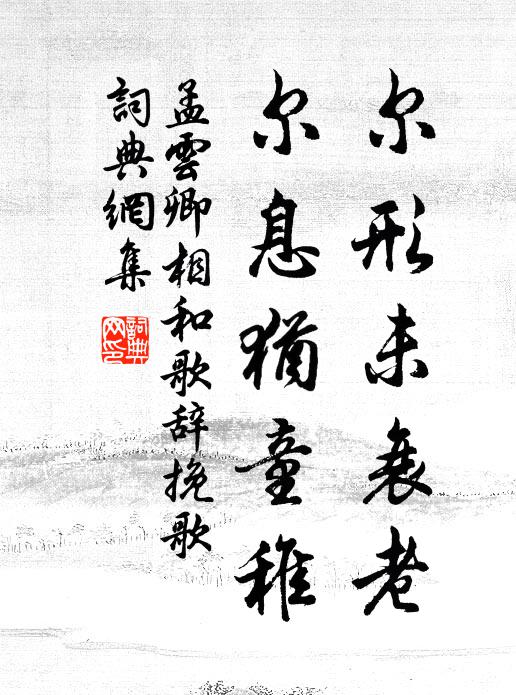 尔形未衰老
尔息猶童稚
孟雲卿相和歌辞挽歌
詞典網集
詞典
网印